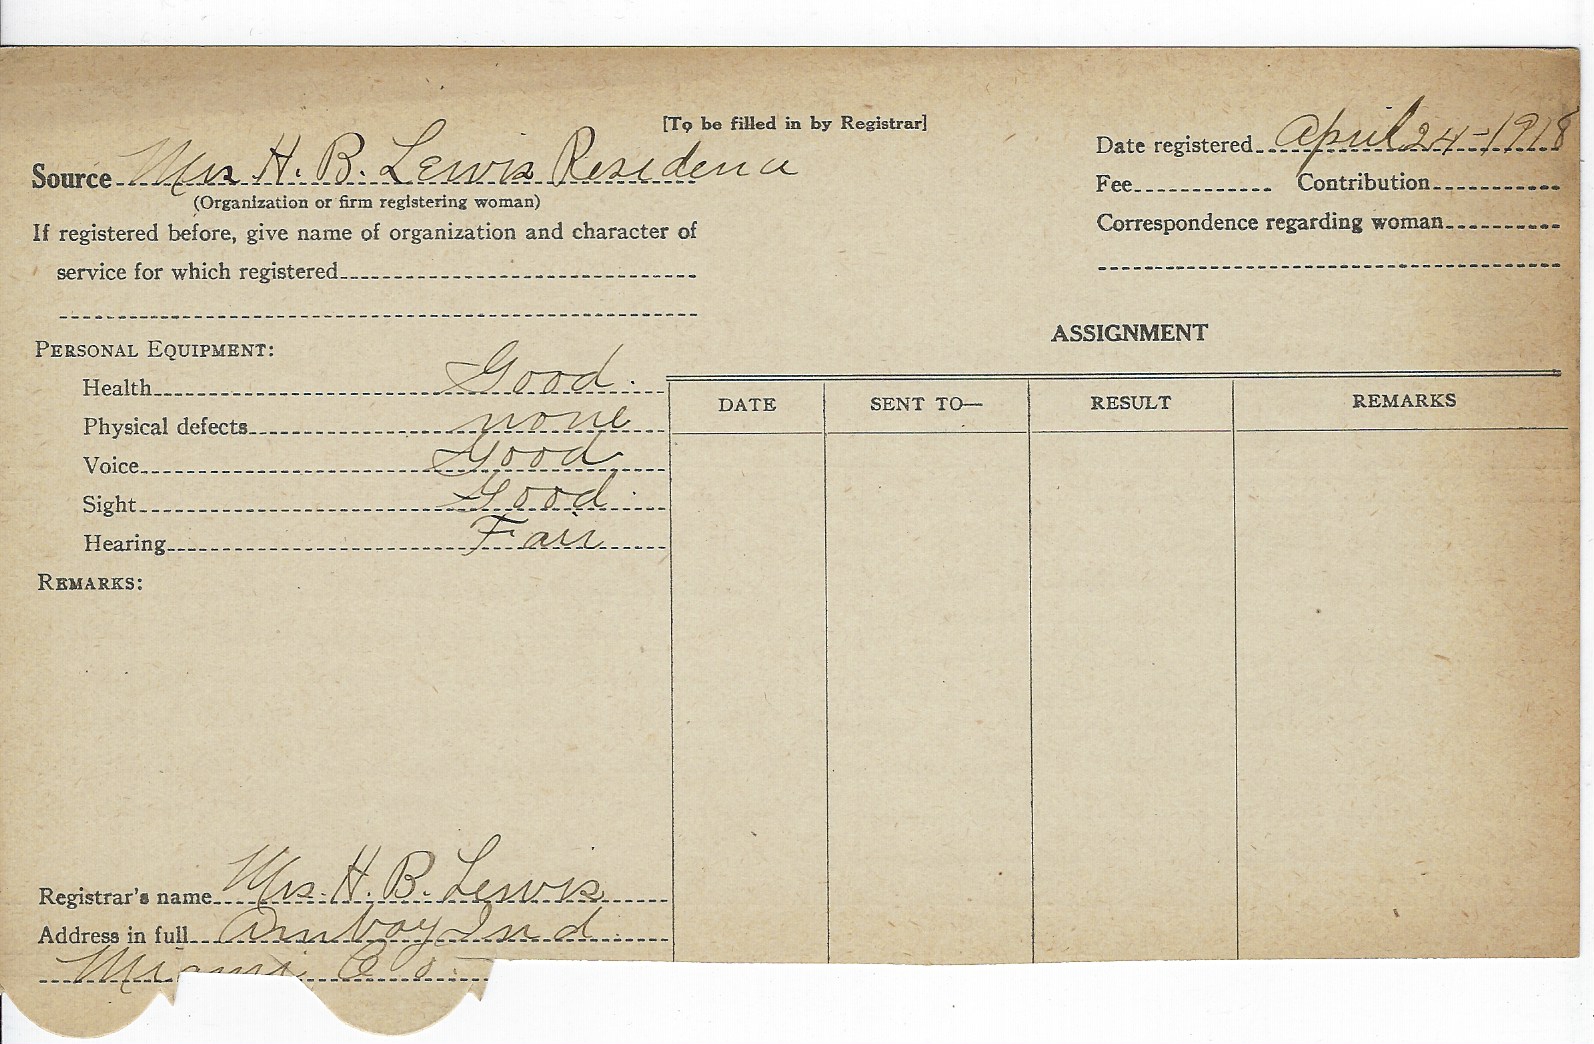 [To be filled in by Registrar]
Source Mrs H. B. Lewis Residence
(Organization or firm registering woman)
If registered before, give name of organization and character of
service for which registered
Date registered April 24-1918
Fee Contribution
Correspondence regarding woman
PERSONAL EQUIPMENT:
Health Good.
Physical defects none
Voice Good
Sight Good.
Hearing Fair
REMARKS:
Registrar's name Mrs. H. B. Lewis
Address in full Amboy Ind.
Miami Co.
ASSIGNMENT
DATE SENT TO— RESULT REMARKS